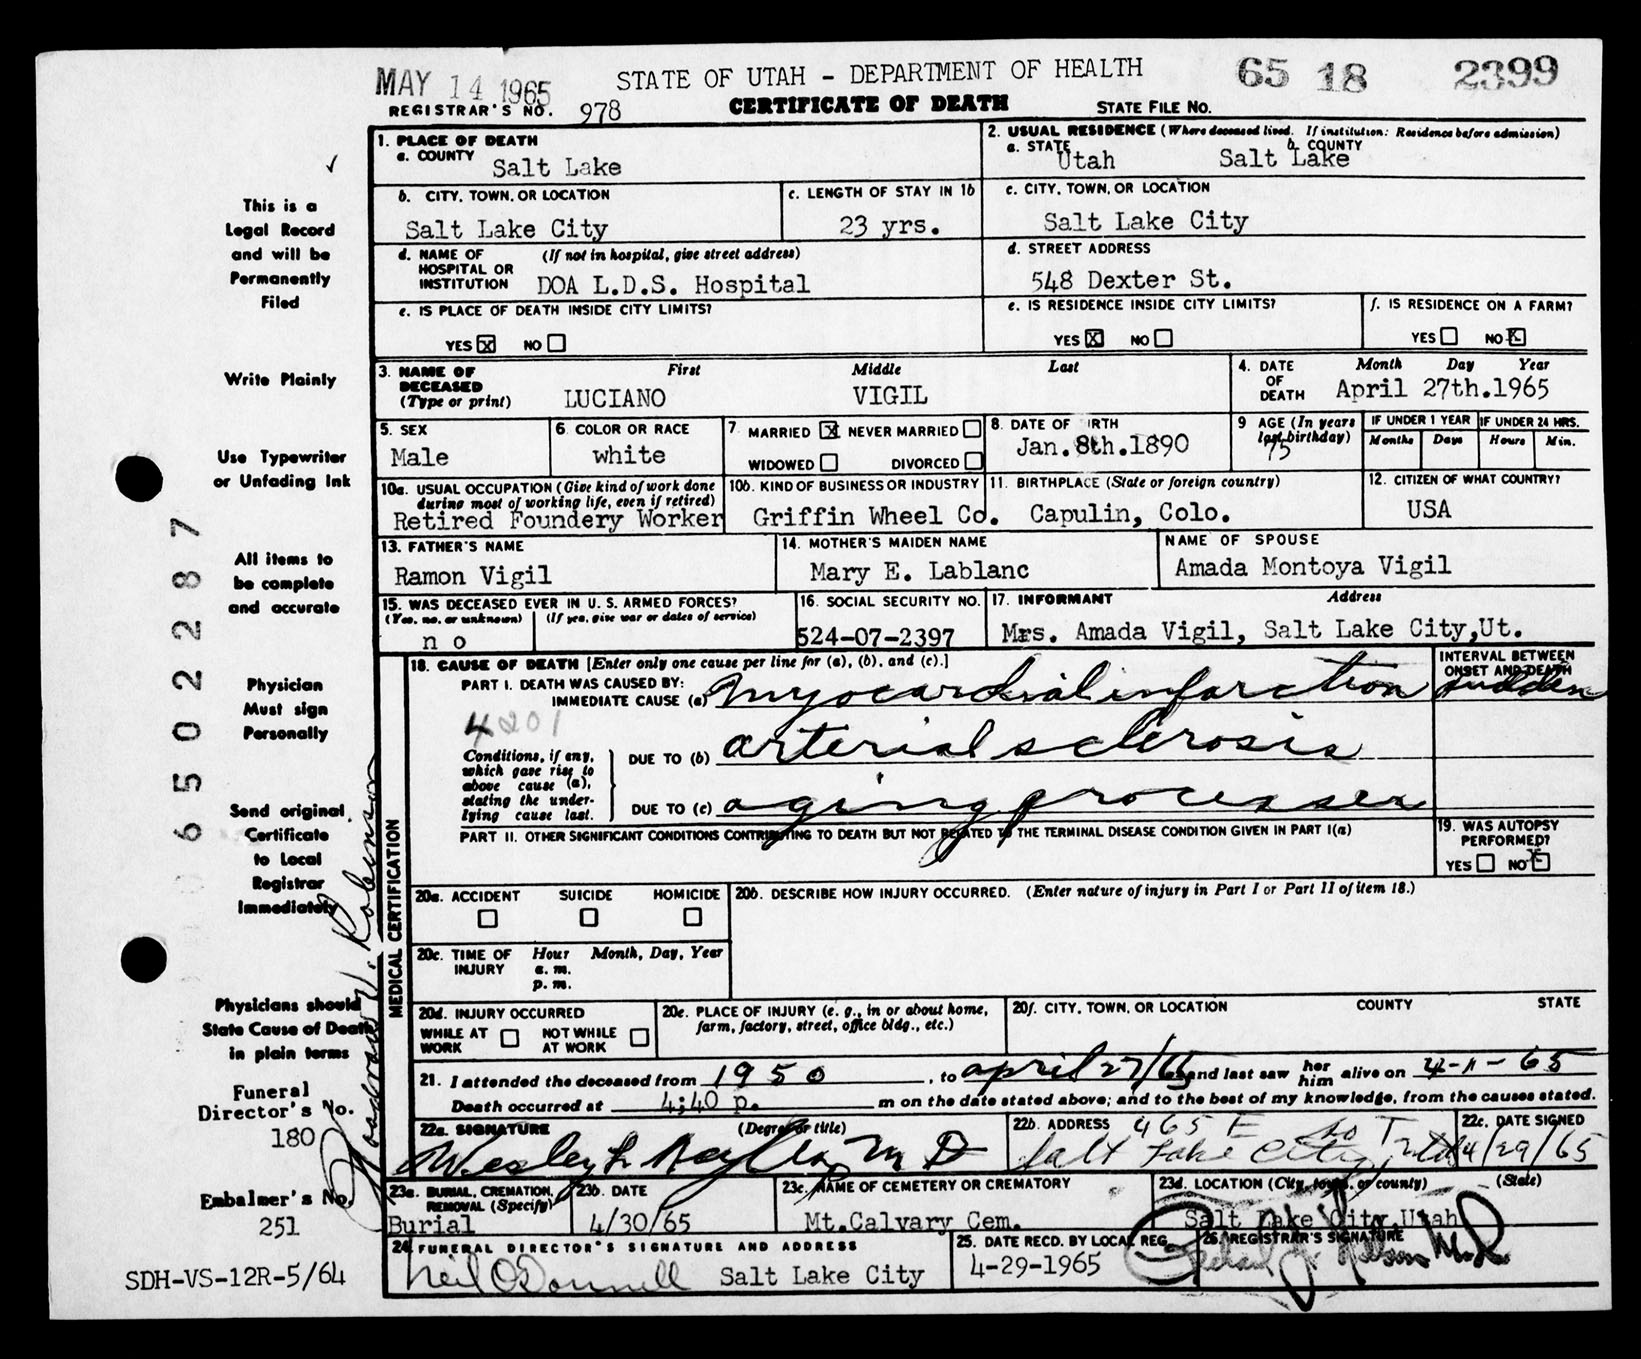 MAY 14 1965
STATE OF UTAH - DEPARTMENT OF HEALTH
65 18 2399
REGISTRAR'S NO. 978
CERTIFICATE OF DEATH
STATE FILE NO.
1. PLACE OF DEATH
a. COUNTY
Salt Lake
2. USUAL RESIDENCE (Where deceased lived. If institution: Residence before admission)
a. STATE
Utah
b. COUNTY
Salt Lake
b. CITY, TOWN, OR LOCATION
Salt Lake City
c. LENGTH OF STAY IN 1b
23 yrs.
c. CITY, TOWN, OR LOCATION
Salt Lake City
d. NAME OF HOSPITAL OR INSTITUTION
(If not in hospital, give street address)
DOA L.D.S. Hospital
d. STREET ADDRESS
548 Dexter St.
e. IS PLACE OF DEATH INSIDE CITY LIMITS?
YES X NO
e. IS RESIDENCE INSIDE CITY LIMITS?
YES X NO
f. IS RESIDENCE ON A FARM?
YES NO X
3. NAME OF DECEASED (Type or print)
First Middle Last
LUCIANO VIGIL
4. DATE OF DEATH
Month Day Year
April 27th.1965
5. SEX
Male
6. COLOR OR RACE
white
7. MARRIED X NEVER MARRIED
WIDOWED DIVORCED
8. DATE OF IRTH
Jan.8th.1890
9 AGE (In years last birthday)
75
IF UNDER 1 YEAR
Months Days
IF UNDER 24 HRS.
Hours Min.
10a. USUAL OCCUPATION (Give kind of work done during most of working life, even if retired)
Retired Foundery Worker
10b. KIND OF BUSINESS OR INDUSTRY
Griffin Wheel Co.
11. BIRTHPLACE (State or foreign country)
Capulin, Colo.
12. CITIZEN OF WHAT COUNTRY?
USA
13. FATHER'S NAME
Ramon Vigil
14. MOTHER'S MAIDEN NAME
Mary E. Lablanc
NAME OF SPOUSE
Amada Montoya Vigil
15. WAS DECEASED EVER IN U. S. ARMED FORCES?
(Yes, no, or unknown) (If yes, give war or dates of service)
no
16. SOCIAL SECURITY NO.
524-07-2397
17. INFORMANT Address
Mrs. Amada Vigil, Salt Lake City,Ut.
MEDICAL CERTIFICATION
18. CAUSE OF DEATH [Enter only one cause per line for (a), (b), and (c).]
INTERVAL BETWEEN ONSET AND DEATH
PART I. DEATH WAS CAUSED BY:
IMMEDIATE CAUSE (a) myocardial infarction
sudden
4201
Conditions, if any, which gave rise to above cause (a), stating the underlying cause last.
DUE TO (b) arterial sclerosis
DUE TO (c) aging processes
PART II. OTHER SIGNIFICANT CONDITIONS CONTRIBUTING TO DEATH BUT NOT RELATED TO THE TERMINAL DISEASE CONDITION GIVEN IN PART I(a)
19. WAS AUTOPSY PERFORMED?
YES NO X
20a. ACCIDENT SUICIDE HOMICIDE
20b. DESCRIBE HOW INJURY OCCURRED. (Enter nature of injury in Part I or Part II of item 18.)
20c. TIME OF INJURY
Hour Month, Day, Year
a. m.
p. m.
20d. INJURY OCCURRED
WHILE AT WORK NOT WHILE AT WORK
20e. PLACE OF INJURY (e. g., in or about home, farm, factory, street, office bldg., etc.)
20f. CITY, TOWN, OR LOCATION COUNTY STATE
21. I attended the deceased from 1950, to april 27/65 and last saw her him alive on 4-11-65
Death occurred at 4;40 p. m on the date stated above; and to the best of my knowledge, from the causes stated.
22a. SIGNATURE (Degree or title)
Wesley M D
22b. ADDRESS 465 E So T
Salt Lake City, Utah
22c. DATE SIGNED
4/29/65
23a. BURIAL, CREMATION, REMOVAL (Specify)
Burial
23b. DATE
4/30/65
23c. NAME OF CEMETERY OR CREMATORY
Mt.Calvary Cem.
23d. LOCATION (City, town, or county) (State)
Salt Lake City,Utah
24. FUNERAL DIRECTOR'S SIGNATURE AND ADDRESS
Neil O'Donnell Salt Lake City
25. DATE RECD. BY LOCAL REG.
4-29-1965
26. REGISTRAR'S SIGNATURE
✓
This is a
Legal Record
and will be
Permanently
Filed
Write Plainly
Use Typewriter
or Unfading Ink
All items to
be complete
and accurate
Physician
Must sign
Personally
Send original
Certificate
to Local
Registrar
Immediately
Physicians should
State Cause of Death
in plain terms
Funeral
Director's No.
180
Embalmer's No.
251
SDH-VS-12R-5/64
65022287
Robinson